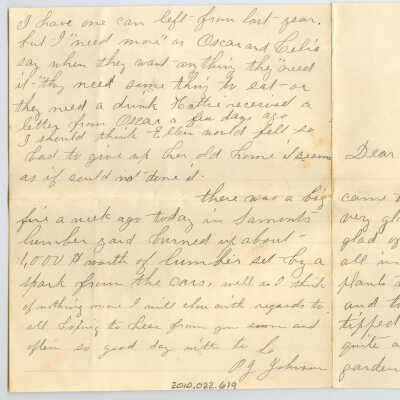 I have one can left from last year.
but I "need more" as Oscar and Celia
say when they want anything they "need
it" they need some thing to eat - or
they need a drink Hattie received a
letter from Oscar a few days ago
I should think Ellen would felt so
had to give up her old home it seems
as if could not done it.
there was a big
fire a week ago today in Lamonts
lumber yard burned up about
1,000 $ worth of lumber set by a
spark from the cars, well as I think
of nothing more I will close with regards to
all hoping to hear from you soon and
often so good day
P J Johnson
2010.022.619
Dear
came
very gl
glad of
all in
plants a
and to
tipped
quite a
garden